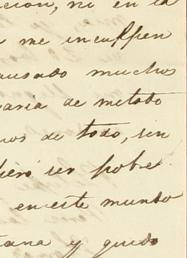 cion, ni en la
me inculpen
ausado muchos
aria de metodo
nos de todo, sin
fiero ser pobre
en este mundo
tana y quedo